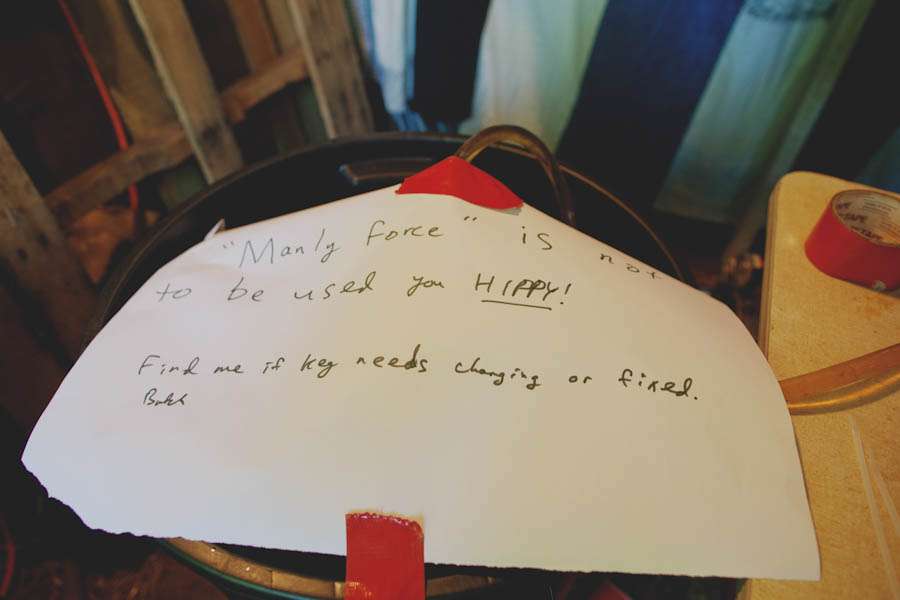 "Manly Force" is not
to be used you HIPPY!
Find me if key needs changing or fixed.
TAPE